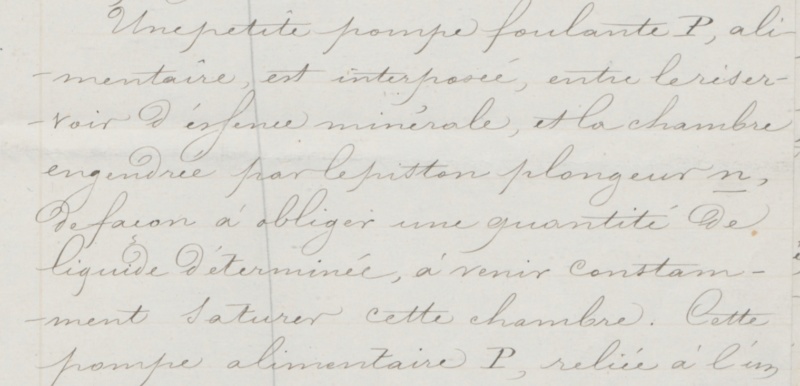 Une petite pompe foulante P, ali-
-mentaîre, est interposée, entre le réser-
-voir d'éssence minérale, et la chambre
engendrée par le piston plongeur n,
de facon á obliger une quantité de
liquide déterminée, á venir constam-
-ment saturer cette chambre. Cette
pompe alimentaire P, reliée á l'un